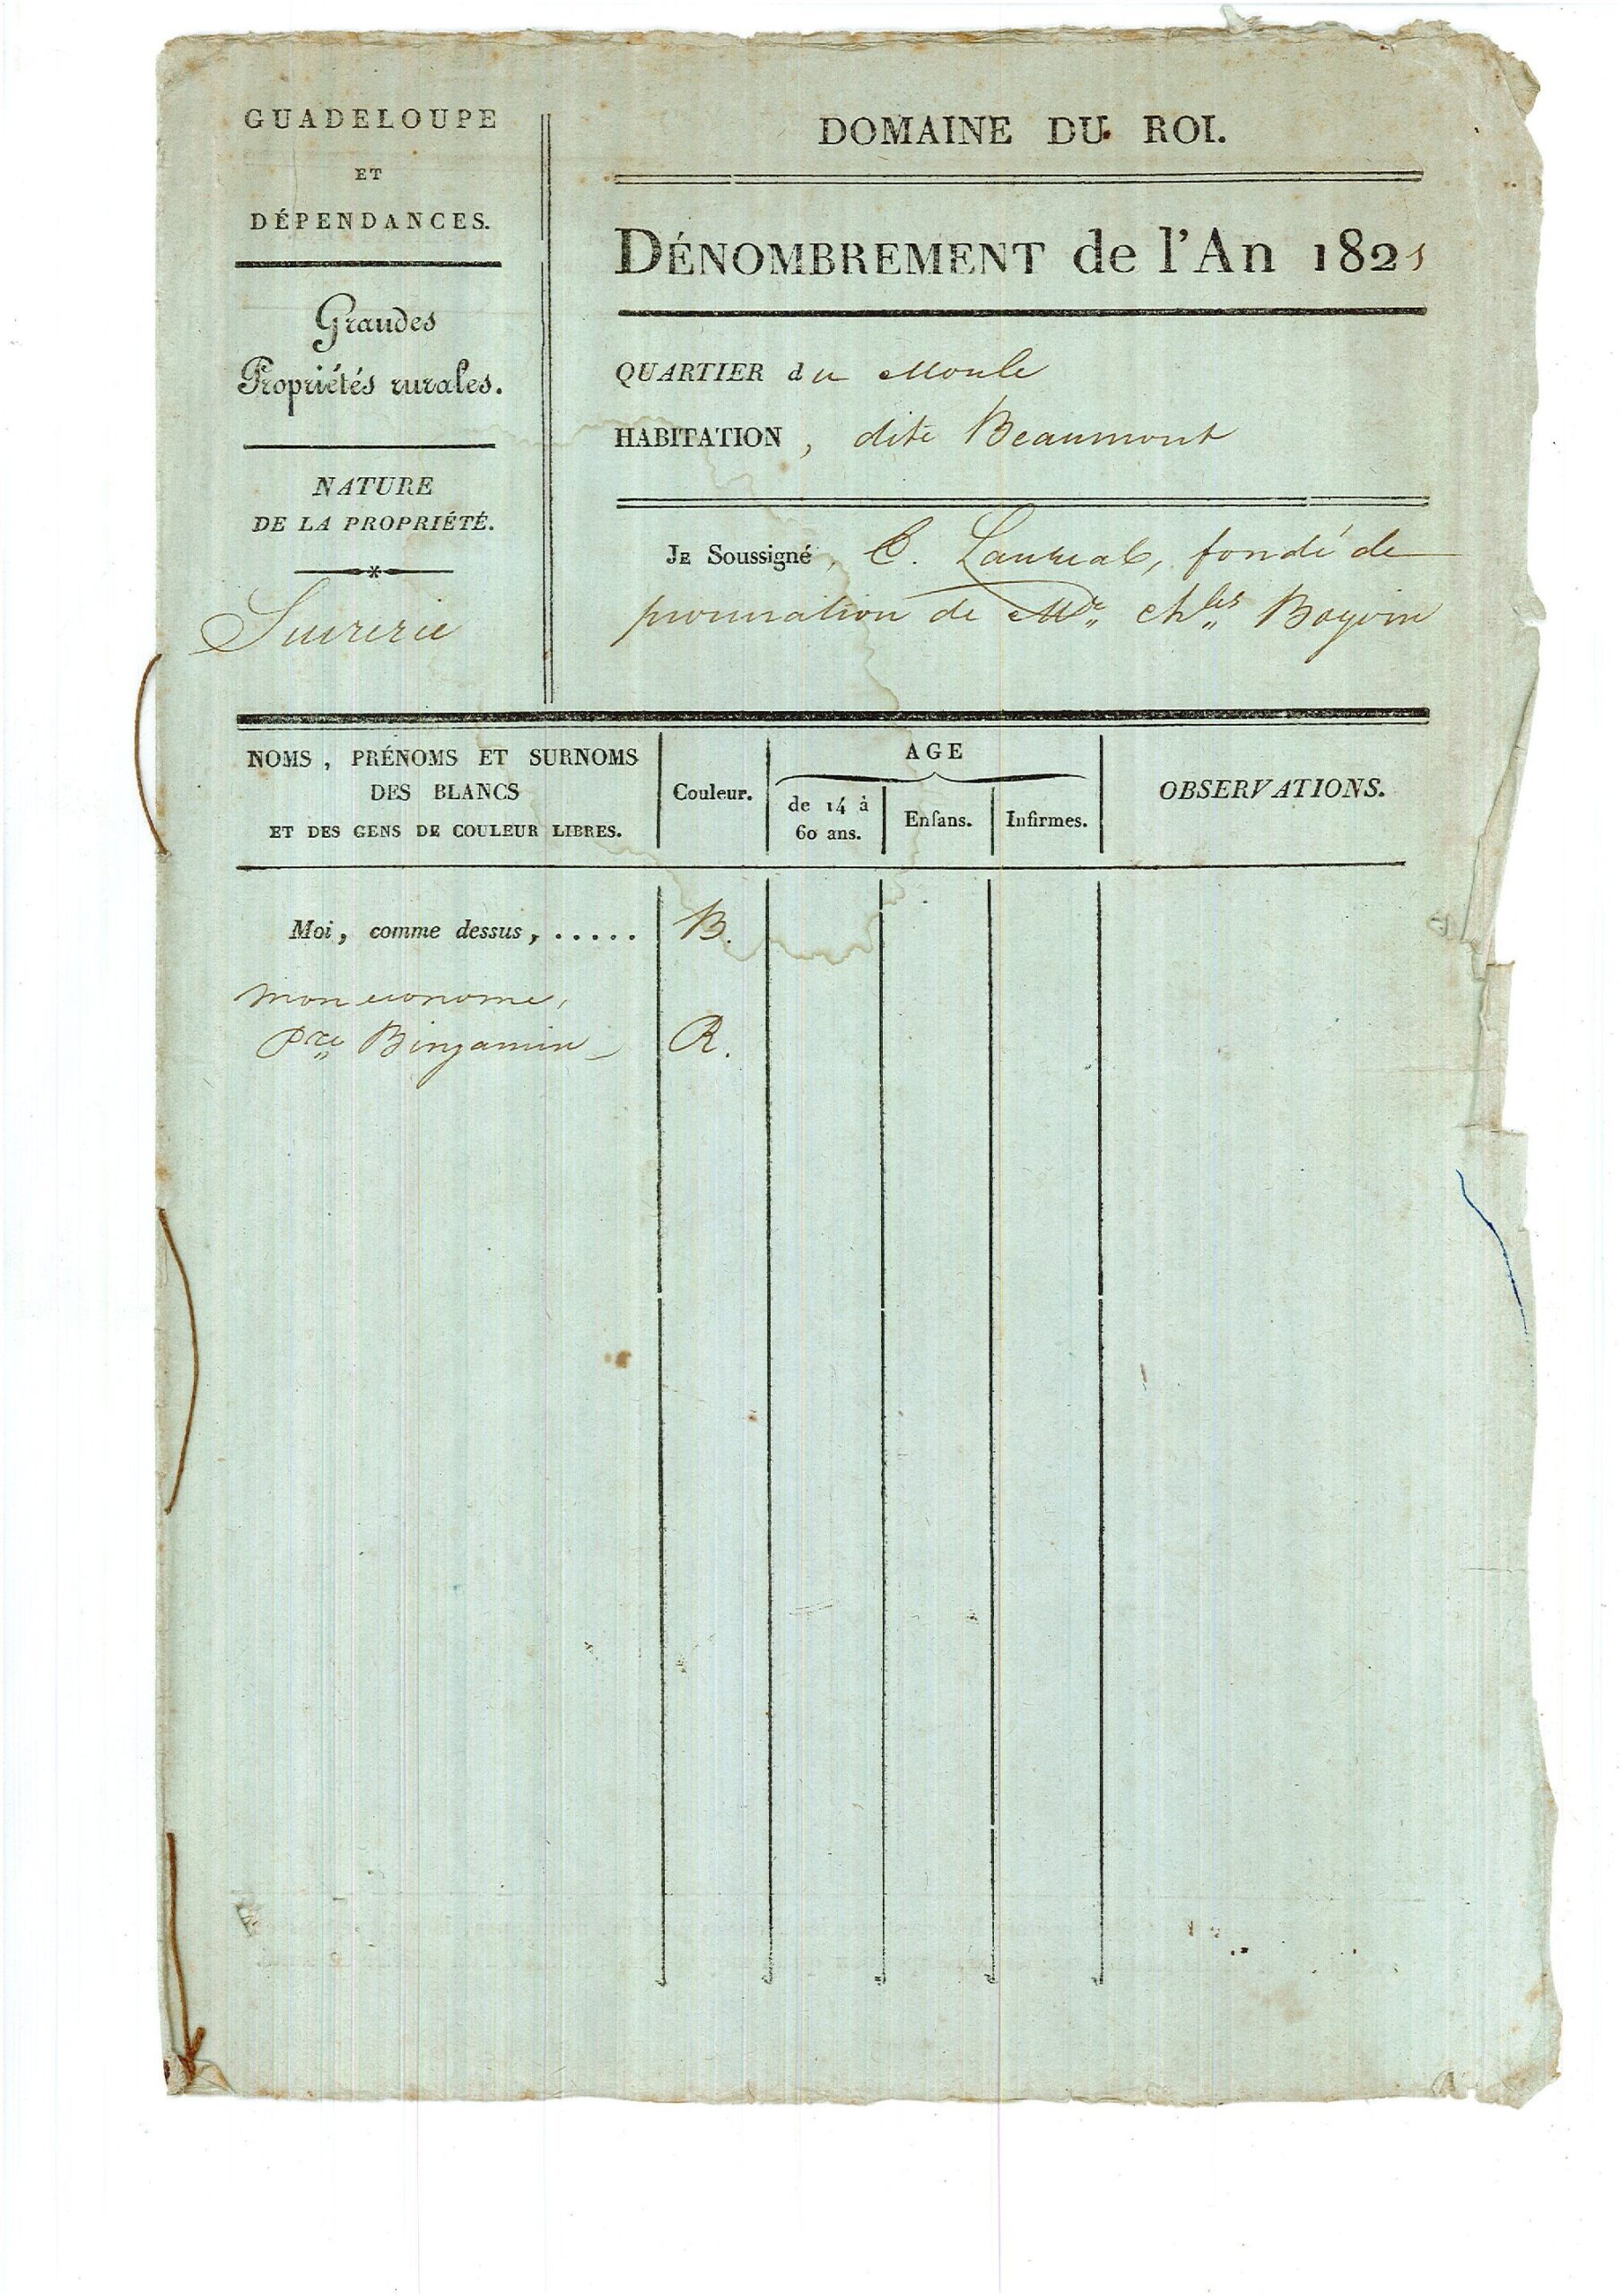 GUADELOUPE
ET
DÉPENDANCES.
Grandes
Propriétés rurales.
NATURE
DE LA PROPRIÉTÉ.
Sucrerie
DOMAINE DU ROI.
DÉNOMBREMENT de l'An 1821
QUARTIER du Moule
HABITATION, dite Beaumont
JE Soussigné, C. Laureal, fondé de
procuration de Mde Chles Boyvin
NOMS, PRÉNOMS ET SURNOMS
DES BLANCS
ET DES GENS DE COULEUR LIBRES.
Couleur.
AGE
de 14 à
60 ans.
Enfans.
Infirmes.
OBSERVATIONS.
Moi, comme dessus, ..... B.
mon econome,
Pre Binjamin R.